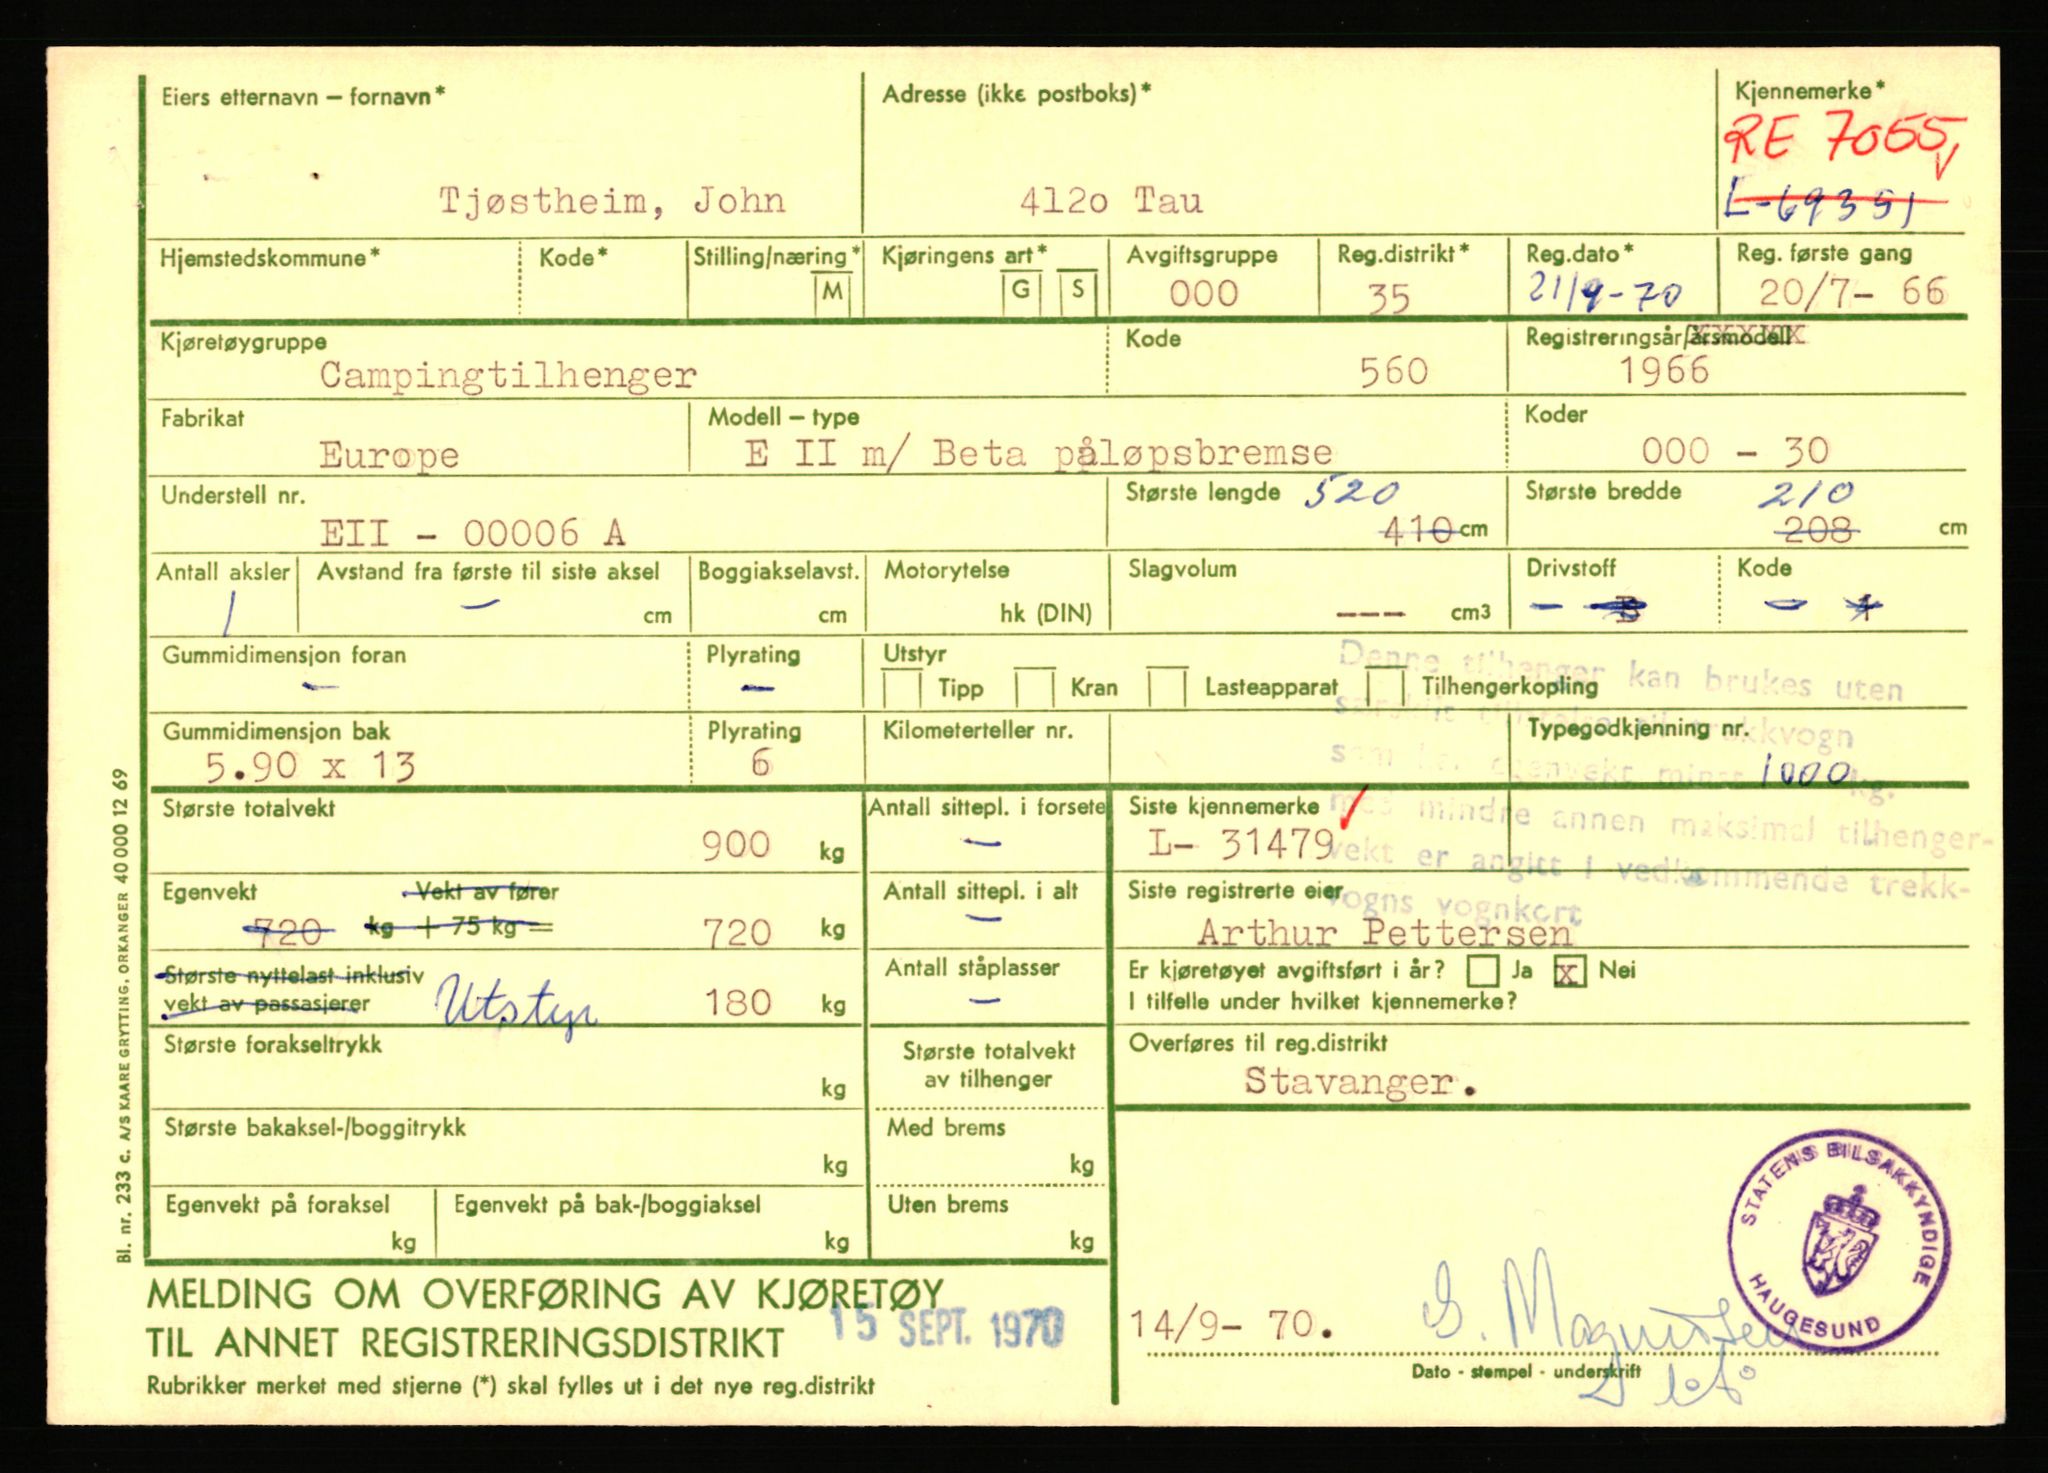 Eiers etternavn – fornavn*
Tjøstheim, John
Adresse (ikke postboks)*
4120 Tau
Kjennemerke*
RE 7055
L-69351
Hjemstedskommune*
Kode*
Stilling/næring*
M
Kjøringens art*
G S
Avgiftsgruppe
000
Reg.distrikt*
35
Reg.dato*
21/9-70
Reg. første gang
20/7- 66
Kjøretøygruppe
Campingtilhenger
Kode
560
Registreringsår/årsmodell
1966
Fabrikat
Europe
Modell – type
E II m/ Beta påløpsbremse
Koder
000 - 30
Understell nr.
EII - 00006 A
Største lengde 520
410 cm
Største bredde 210
208 cm
Antall aksler
1
Avstand fra første til siste aksel
– cm
Boggiakselavst.
cm
Motorytelse
hk (DIN)
Slagvolum
--- cm3
Drivstoff
– B
Kode
–
Gummidimensjon foran
–
Plyrating
–
Utstyr
Tipp Kran Lasteapparat Tilhengerkopling
Denne tilhenger kan brukes uten
særskilt tillatelse til trekkvogn
som har egenvekt minst 1000 kg.
med mindre annen maksimal tilhenger-
vekt er angitt i vedkommende trekk-
vogns vognkort
Gummidimensjon bak
5.90 x 13
Plyrating
6
Kilometerteller nr.
Typegodkjenning nr.
Største totalvekt
900 kg
Antall sittepl. i forsete
–
Siste kjennemerke
L- 31479
Egenvekt Vekt av fører
720 kg + 75 kg = 720 kg
Antall sittepl. i alt
–
Siste registrerte eier
Arthur Pettersen
Største nyttelast inklusiv
vekt av passasjerer Utstyr 180 kg
Antall ståplasser
–
Er kjøretøyet avgiftsført i år? Ja x Nei
I tilfelle under hvilket kjennemerke?
Største forakseltrykk
kg
Største totalvekt
av tilhenger
Overføres til reg.distrikt
Stavanger.
Største bakaksel-/boggitrykk
kg
Med brems
kg
Egenvekt på foraksel
kg
Egenvekt på bak-/boggiaksel
kg
Uten brems
kg
STATENS BILSAKKYNDIGE
HAUGESUND
MELDING OM OVERFØRING AV KJØRETØY
TIL ANNET REGISTRERINGSDISTRIKT
15 SEPT. 1970
Rubrikker merket med stjerne (*) skal fylles ut i det nye reg.distrikt
14/9- 70.
Dato - stempel - underskrift
Bl. nr. 233 c. A/S KAARE GRYTTING, ORKANGER 40 000 12 69